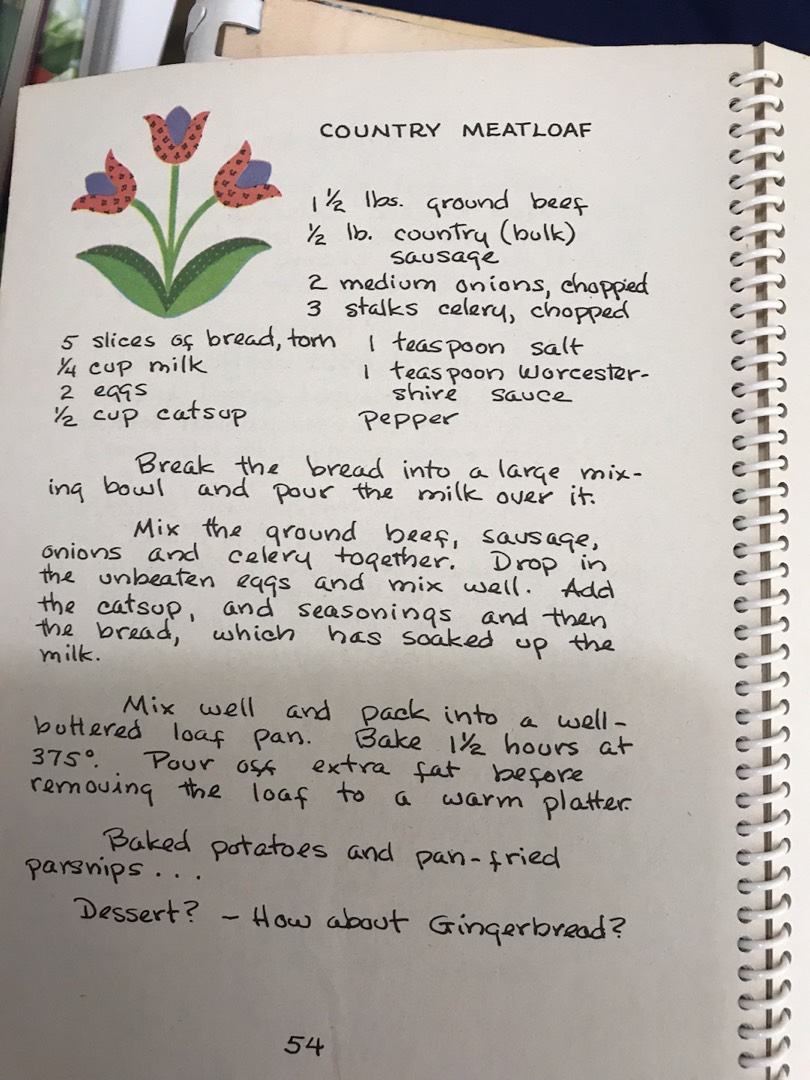 COUNTRY MEATLOAF
1½ lbs. ground beef
½ lb. country (bulk)
sausage
2 medium onions, choppied
3 stalks celery, chopped
5 slices of bread, torn
¼ cup milk
2 eggs
½ cup catsup
1 teaspoon salt
1 teaspoon Worcester-
shire sauce
pepper
Break the bread into a large mix-
ing bowl and pour the milk over it.
Mix the ground beef, sausage,
onions and celery together. Drop in
the unbeaten eggs and mix well. Add
the catsup, and seasonings and then
the bread, which has soaked up the
milk.
Mix well and pack into a well-
buttered loaf pan. Bake 1½ hours at
375°. Pour off extra fat before
removing the loaf to a warm platter.
Baked potatoes and pan-fried
parsnips...
Dessert? - How about Gingerbread?
54